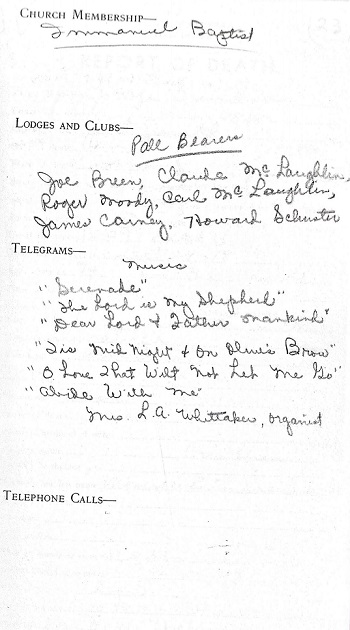 CHURCH MEMBERSHIP—
Immanuel Baptist
LODGES AND CLUBS—
Pall Bearers
Joe Breen, Claude McLaughlin,
Roger Moody, Carl McLaughlin,
James Carney, Howard Schuster
TELEGRAMS—
Music
"Serenade"
"The Lord is My Shepherd"
"Dear Lord & Father Mankind"
"Tis Mid Night & On Olives Brow"
"O Love That Wilt Not Let Me Go"
"Abide With Me"
Mrs. L.A. Whittaker, organist
TELEPHONE CALLS—